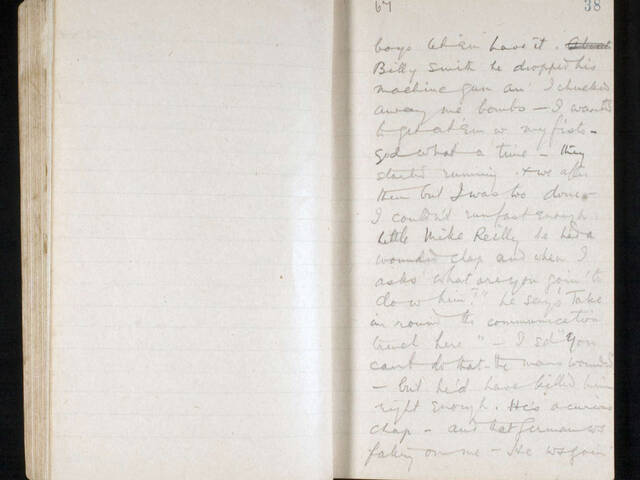 67 38
boys let 'em have it. About
Billy Smith he dropped his
machine gun an' I chucked
away me bombs – I wanted
to get at 'em w my fists –
God what a time – they
started running & we after
them but I was too done –
I couldn't run fast enough.
Little Mike Reilly he had a
wounded chap and when I
asks "what are you goin' to
do w him?" he says "Take
im round the communication
trench here" – I sd "You
cant do that – the mans wounded
– but he'd have killed him
right enough. He's a curious
chap – and that German ws
on me – He ws goin